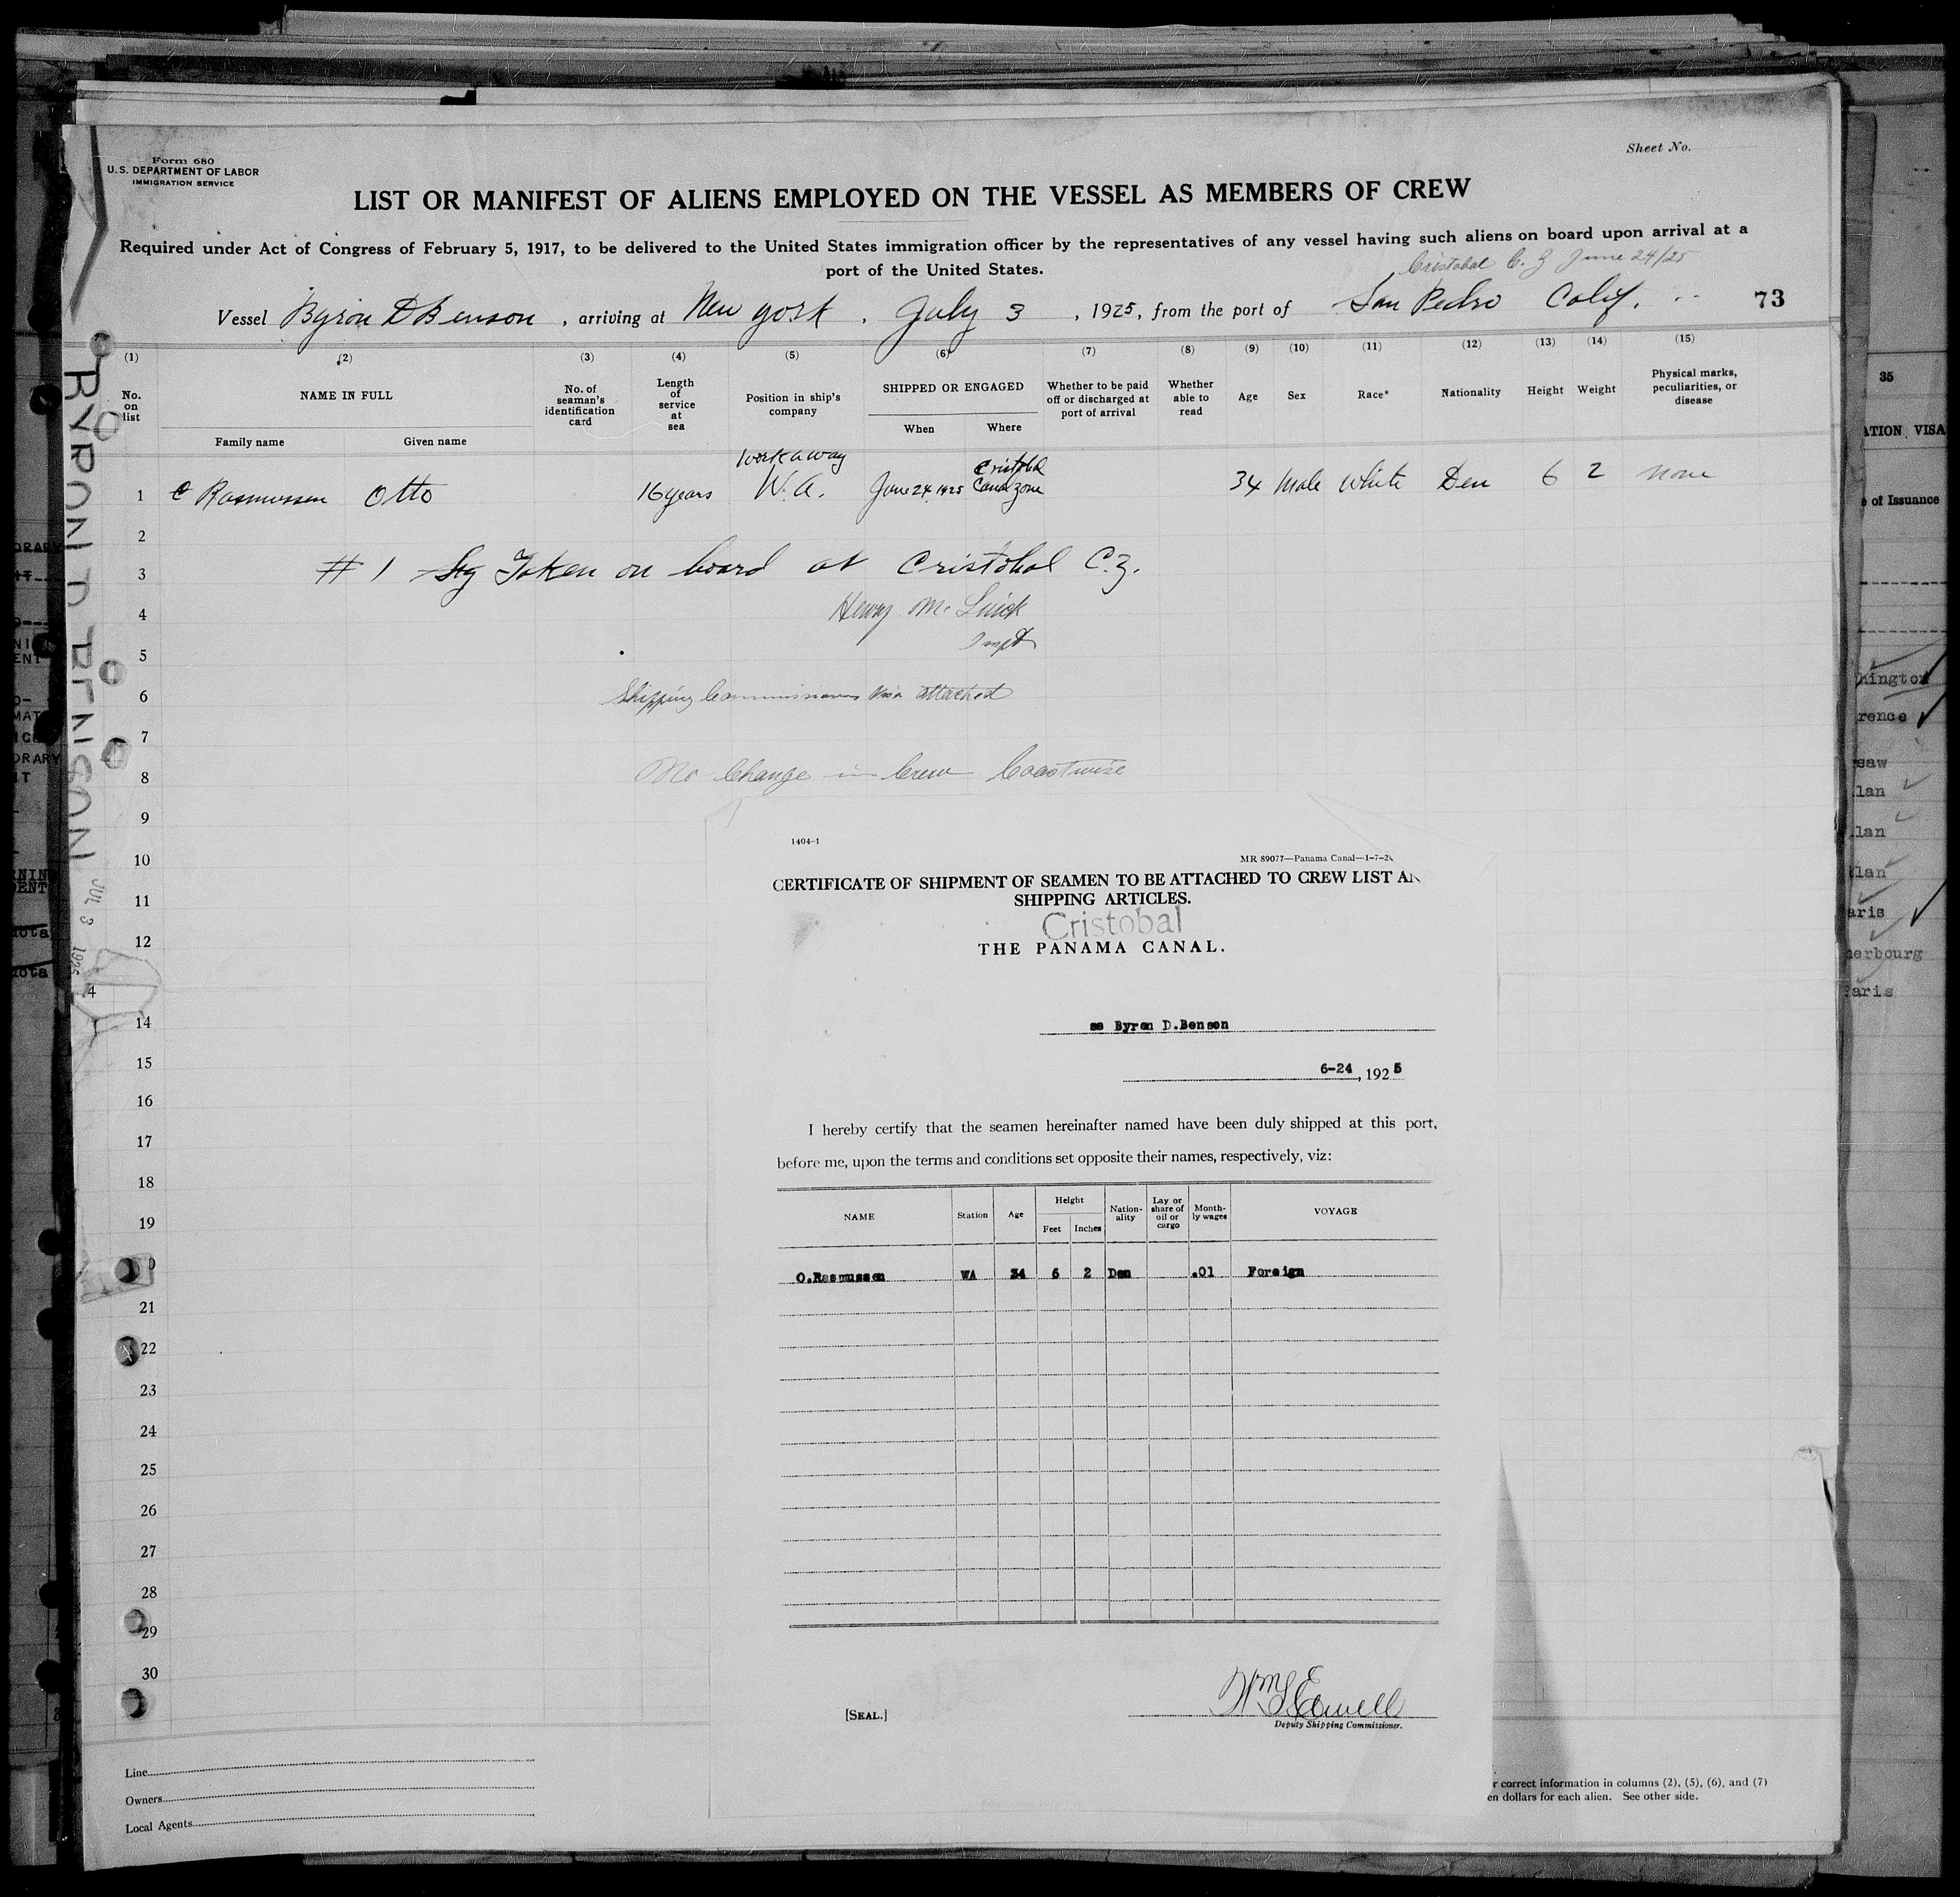 Form 680
U.S. DEPARTMENT OF LABOR
IMMIGRATION SERVICE
Sheet No.
LIST OR MANIFEST OF ALIENS EMPLOYED ON THE VESSEL AS MEMBERS OF CREW
Required under Act of Congress of February 5, 1917, to be delivered to the United States immigration officer by the representatives of any vessel having such aliens on board upon arrival at a
port of the United States.
Cristobal C. Z June 24/25
Vessel Byron D Benson, arriving at New york, July 3, 1925, from the port of San Pedro Calif. 73
(1) (2) (3) (4) (5) (6) (7) (8) (9) (10) (11) (12) (13) (14) (15)
No. on list
NAME IN FULL
Family name Given name
No. of seaman's identification card
Length of service at sea
Position in ship's company
SHIPPED OR ENGAGED
When Where
Whether to be paid off or discharged at port of arrival
Whether able to read
Age
Sex
Race*
Nationality
Height
Weight
Physical marks, peculiarities, or disease
Workaway
Cristobal
1 Rasmussen Otto 16 years W. A. June 24, 1925 Canal zone 34 Male White Den 6 2 none
2
3 # 1 Taken on board at Cristobal C.Z.
4 Henry Mc
5
6 Shipping Commissioners visa attached
7
8 No Change in Crew Coastwise
9
10
11
12
14
15
16
17
18
19
21
22
23
24
25
26
27
28
29
30
BYRON D BENSON
JUL 3 1925
4
1404-1
MR 89077—Panama Canal—1-7-24
CERTIFICATE OF SHIPMENT OF SEAMEN TO BE ATTACHED TO CREW LIST AN
SHIPPING ARTICLES.
Cristobal
THE PANAMA CANAL.
ss Byron D.Benson
6-24, 1925
I hereby certify that the seamen hereinafter named have been duly shipped at this port,
before me, upon the terms and conditions set opposite their names, respectively, viz:
NAME
Station
Age
Height
Feet Inches
Nation-ality
Lay or share of oil or cargo
Month-ly wages
VOYAGE
O.Rasmussen WA 34 6 2 Den .01 Foreign
[SEAL.]
Deputy Shipping Commissioner.
Line
Owners
Local Agents
r correct information in columns (2), (5), (6), and (7)
en dollars for each alien. See other side.
35
ATION VISA
of Issuance
hington
rence
saw
lan
lan
lan
aris
herbourg
Paris